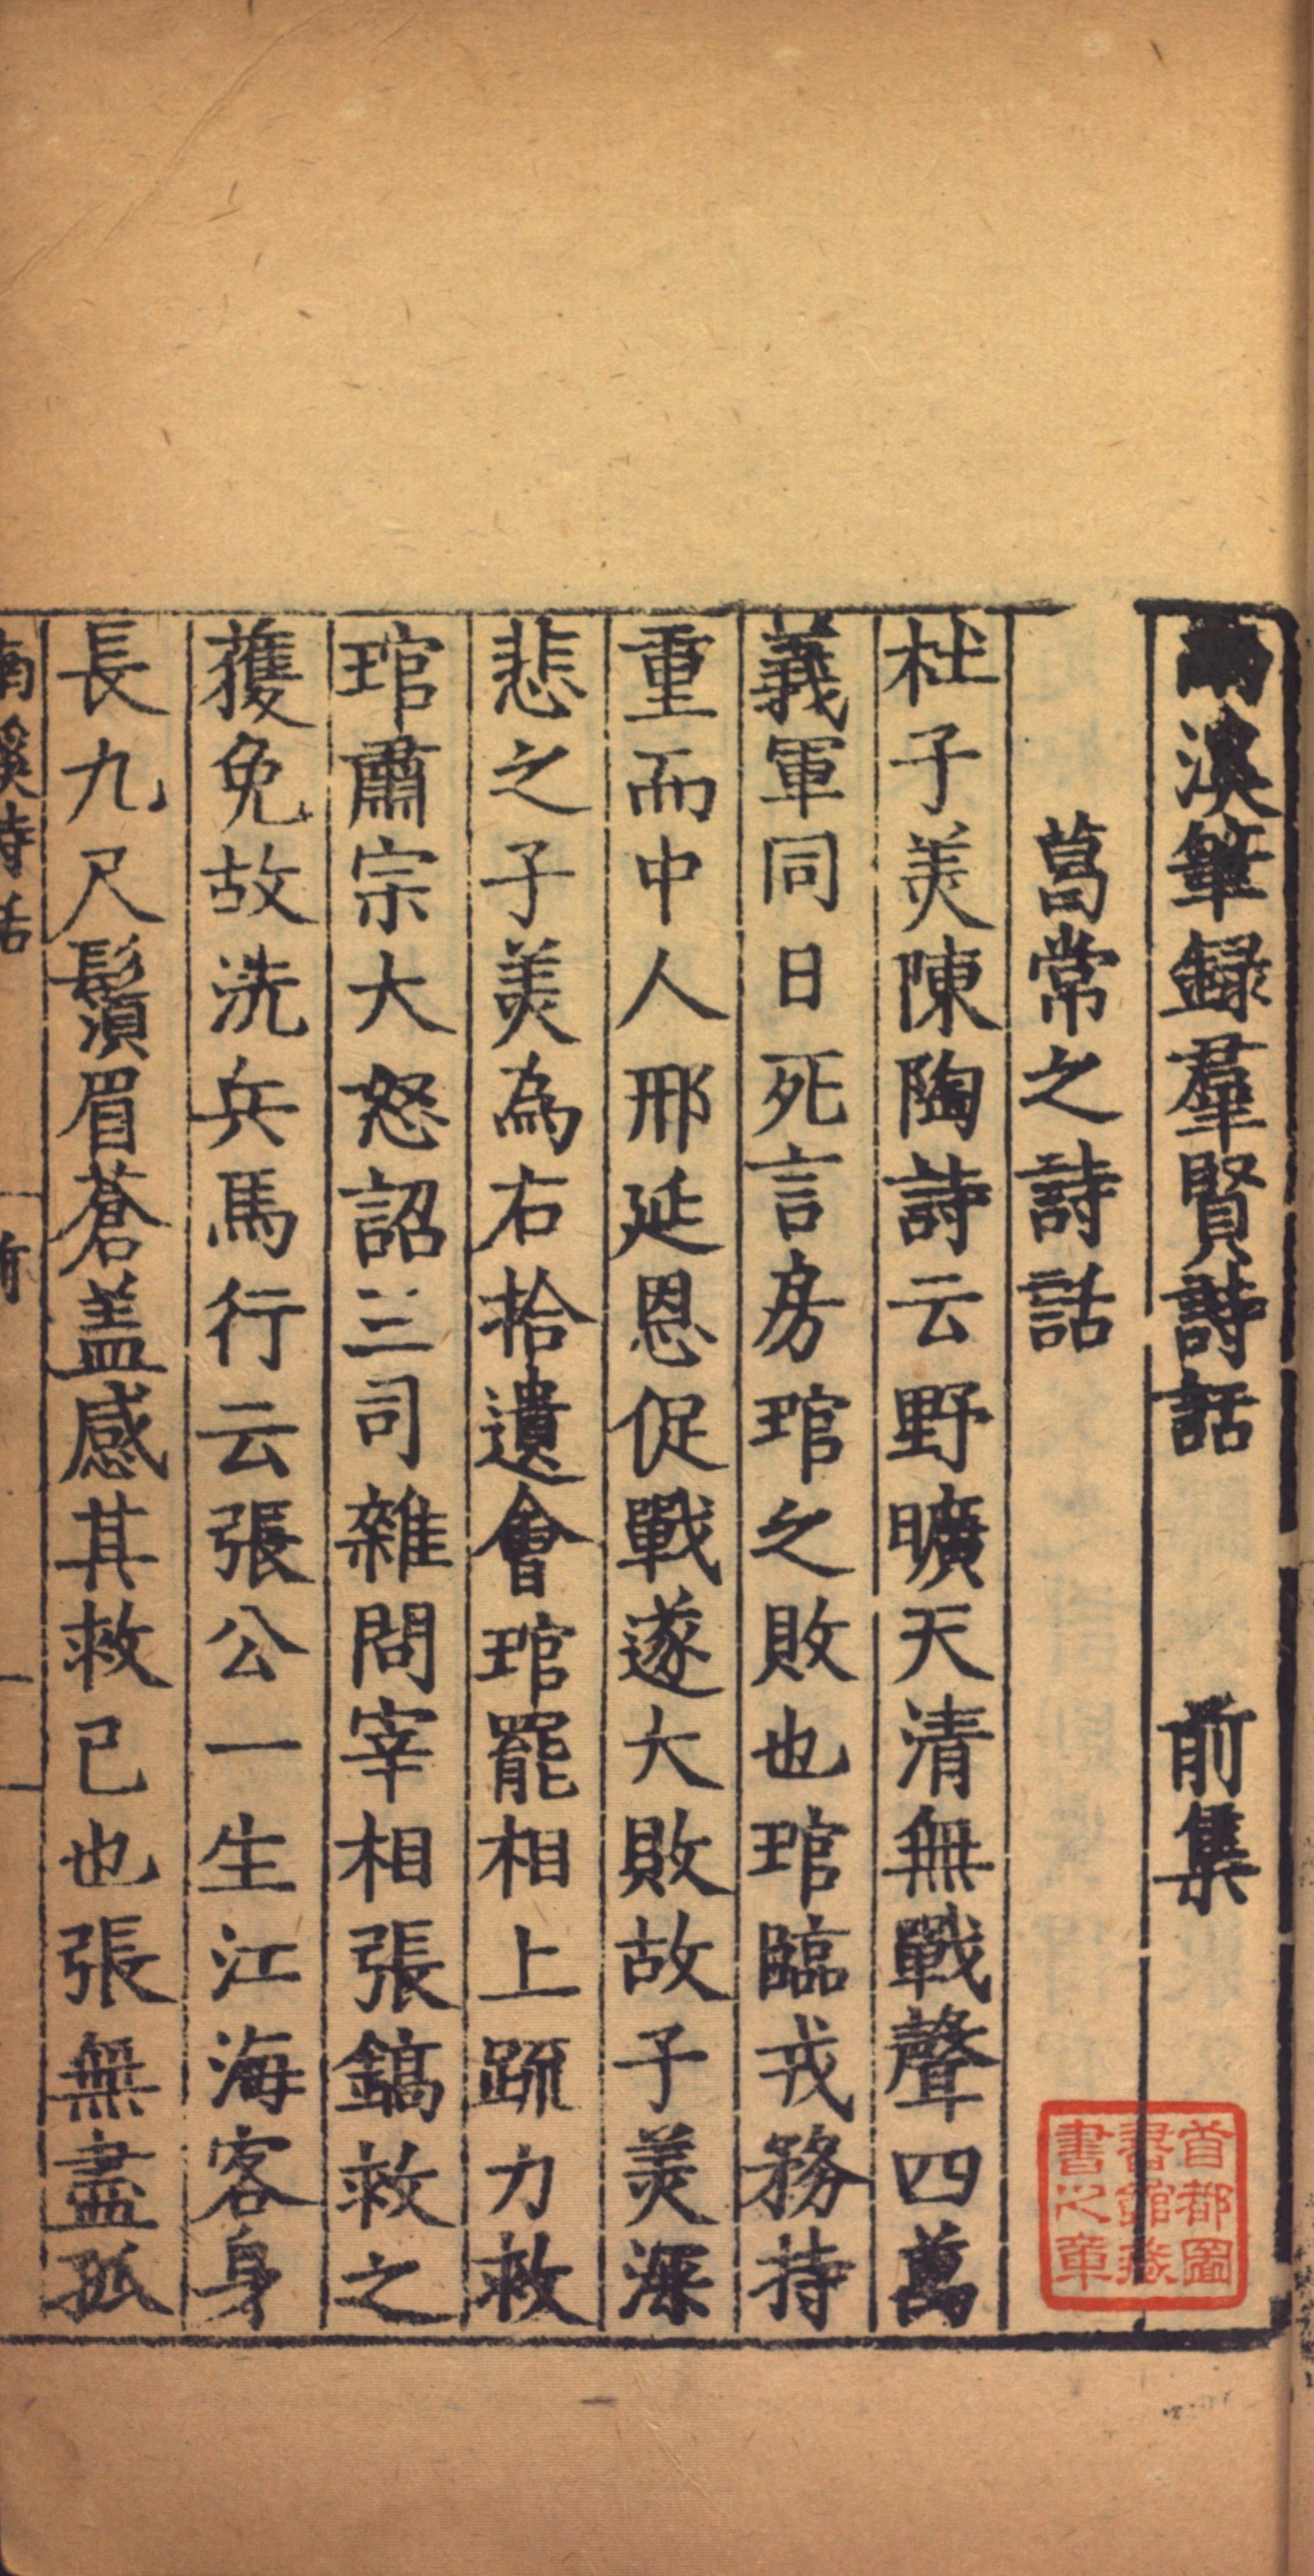 南溪筆録羣賢詩話 前集
葛常之詩話
杜子美陳陶詩云野曠天清無戰聲四萬
義軍同日死言房琯之敗也琯臨戎務持
重而中人邢延恩促戰遂大敗故子美深
悲之子美為右拾遺會琯罷相上䟽力救
琯肅宗大怒詔三司雜問宰相張鎬救之
獲免故洗兵馬行云張公一生江海客身
長九尺鬚眉蒼盖感其救已也張無盡孤
南溪詩話 前
首都圖
書館藏
書之章